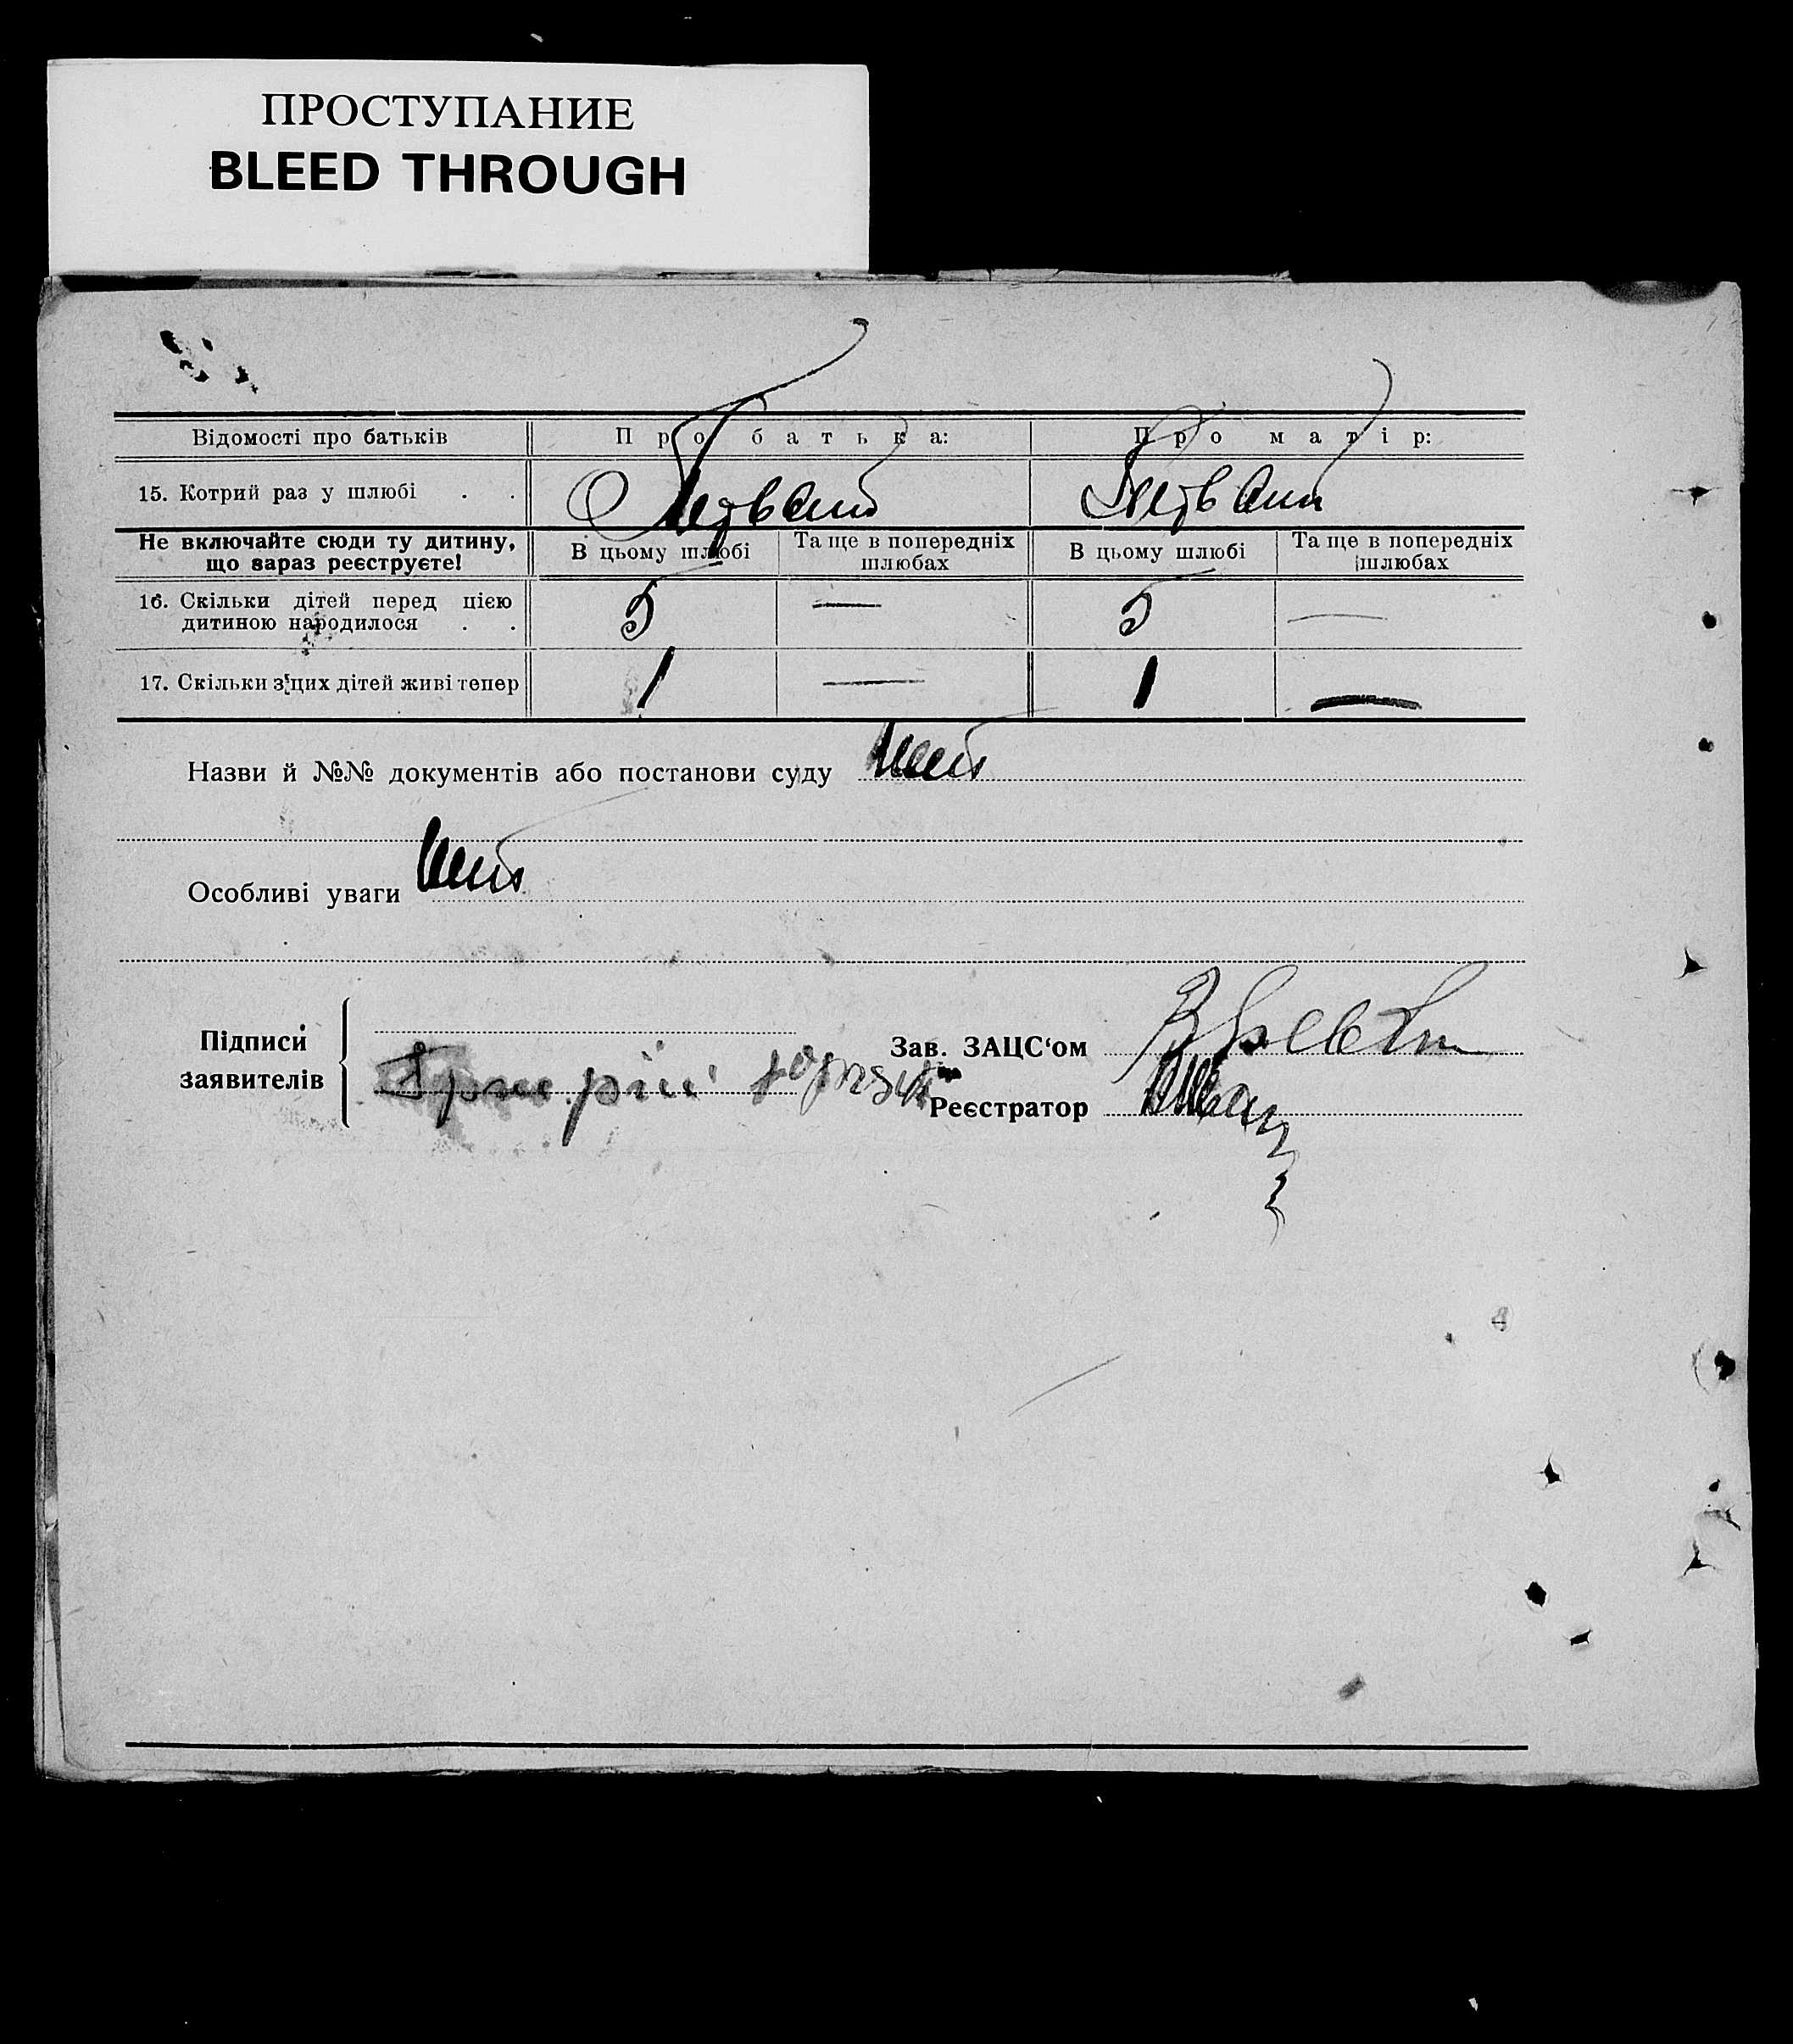 ПРОСТУПАНИЕ
BLEED THROUGH
Відомості про батьків Про батька: Про матір:
15. Котрий раз у шлюбі . . Первий Первий
Не включайте сюди ту дитину, що зараз реєструєте! В цьому шлюбі Та ще в попередніх шлюбах В цьому шлюбі Та ще в попередніх шлюбах
16. Скільки дітей перед цією дитиною народилося . . 5 — 5 —
17. Скільки з цих дітей живі тепер 1 — 1 —
Назви й №№ документів або постанови суду
Особливі уваги
Підписи заявителів
Зав. ЗАЦС‘ом
Реєстратор